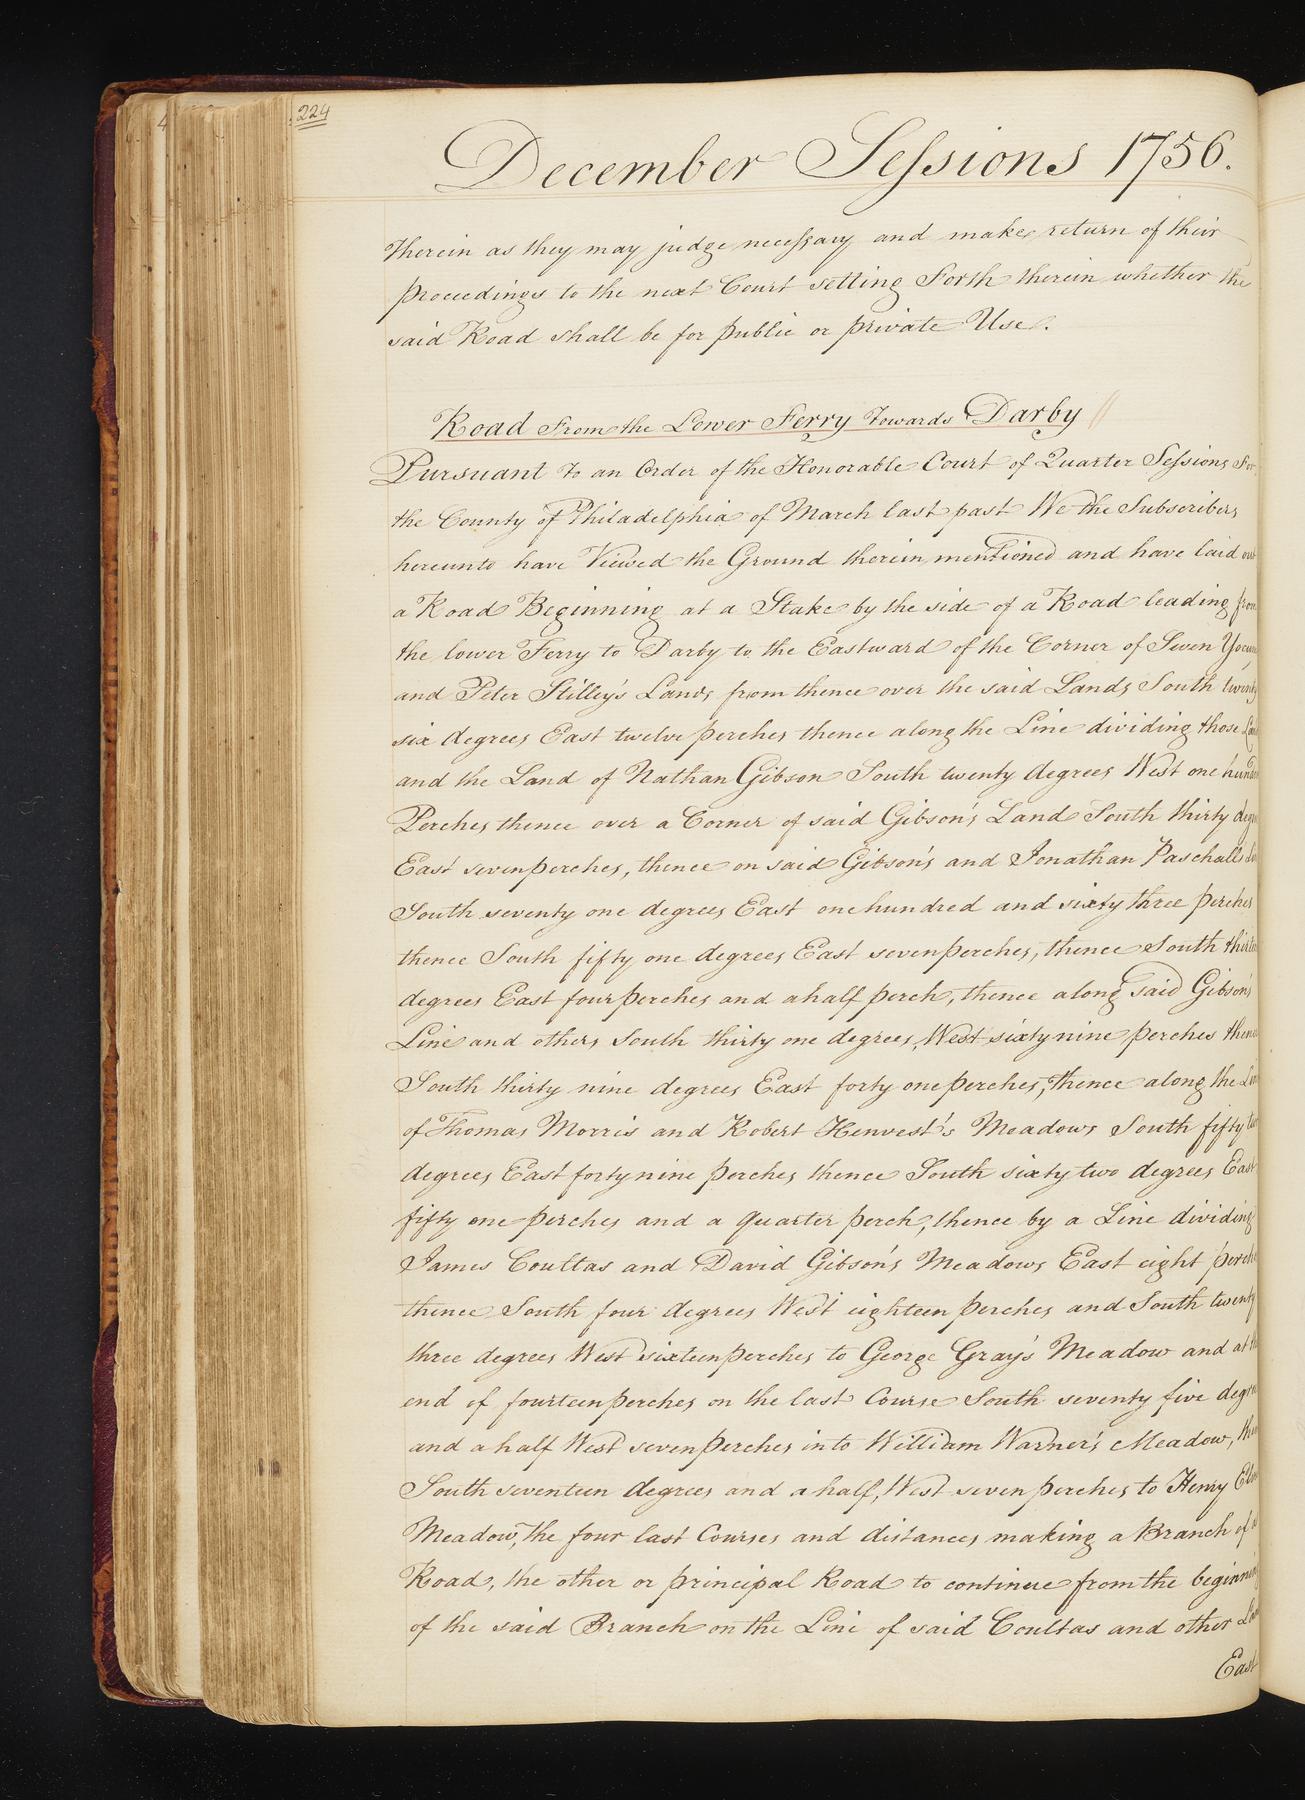 224
December Sessions 1756.
therein as they may judge necessary and make return of their
proceedings to the next Court setting Forth therein whether the
said Road shall be for public or private Use.
Road From the Lower Ferry Towards Darby
Pursuant to an Order of the Honorable Court of Quarter Sessions For
the County of Philadelphia of March last past We the Subscribers
hereunto have Viewed the Ground therein mentioned and have laid out
a Road Beginning at a Stake by the side of a Road leading from
the lower Ferry to Darby to the Eastward of the Corner of Seven
and Peter Stilley's Lands from thence over the said Lands South twenty
six degrees East twelve perches thence along the Line dividing those
and the Land of Nathan Gibson South twenty degrees West one
Perches thence over a Corner of said Gibson's Land South thirty
East seven perches, thence on said Gibson's and Jonathan Paschalls
South seventy one degrees East one hundred and sixty three perches
thence South fifty one degrees East seven perches, thence South
degrees East four perches and a half perch, thence along said Gibson's
Line and others South thirty one degrees West sixty nine perches thence
South thirty nine degrees East forty one perches, thence along the
of Thomas Morris and Robert Henvest's Meadows South fifty
degrees East forty nine perches thence South sixty two degrees East
fifty one perches and a quarter perch, thence by a Line dividing
James Coultas and David Gibson's Meadows East eight
thence South four degrees West eighteen perches and South twenty
three degrees West sixteen perches to George Gray's Meadow and at
end of fourteen perches on the last Course South seventy five
and a half West seven perches into William Warner's Meadow,
South seventeen degrees and a half, West seven perches to Henry
Meadow, the four last Courses and distances making a Branch of
Road, the other or principal Road to continue from the
of the said Branch on the Line of said Coultas and other
East